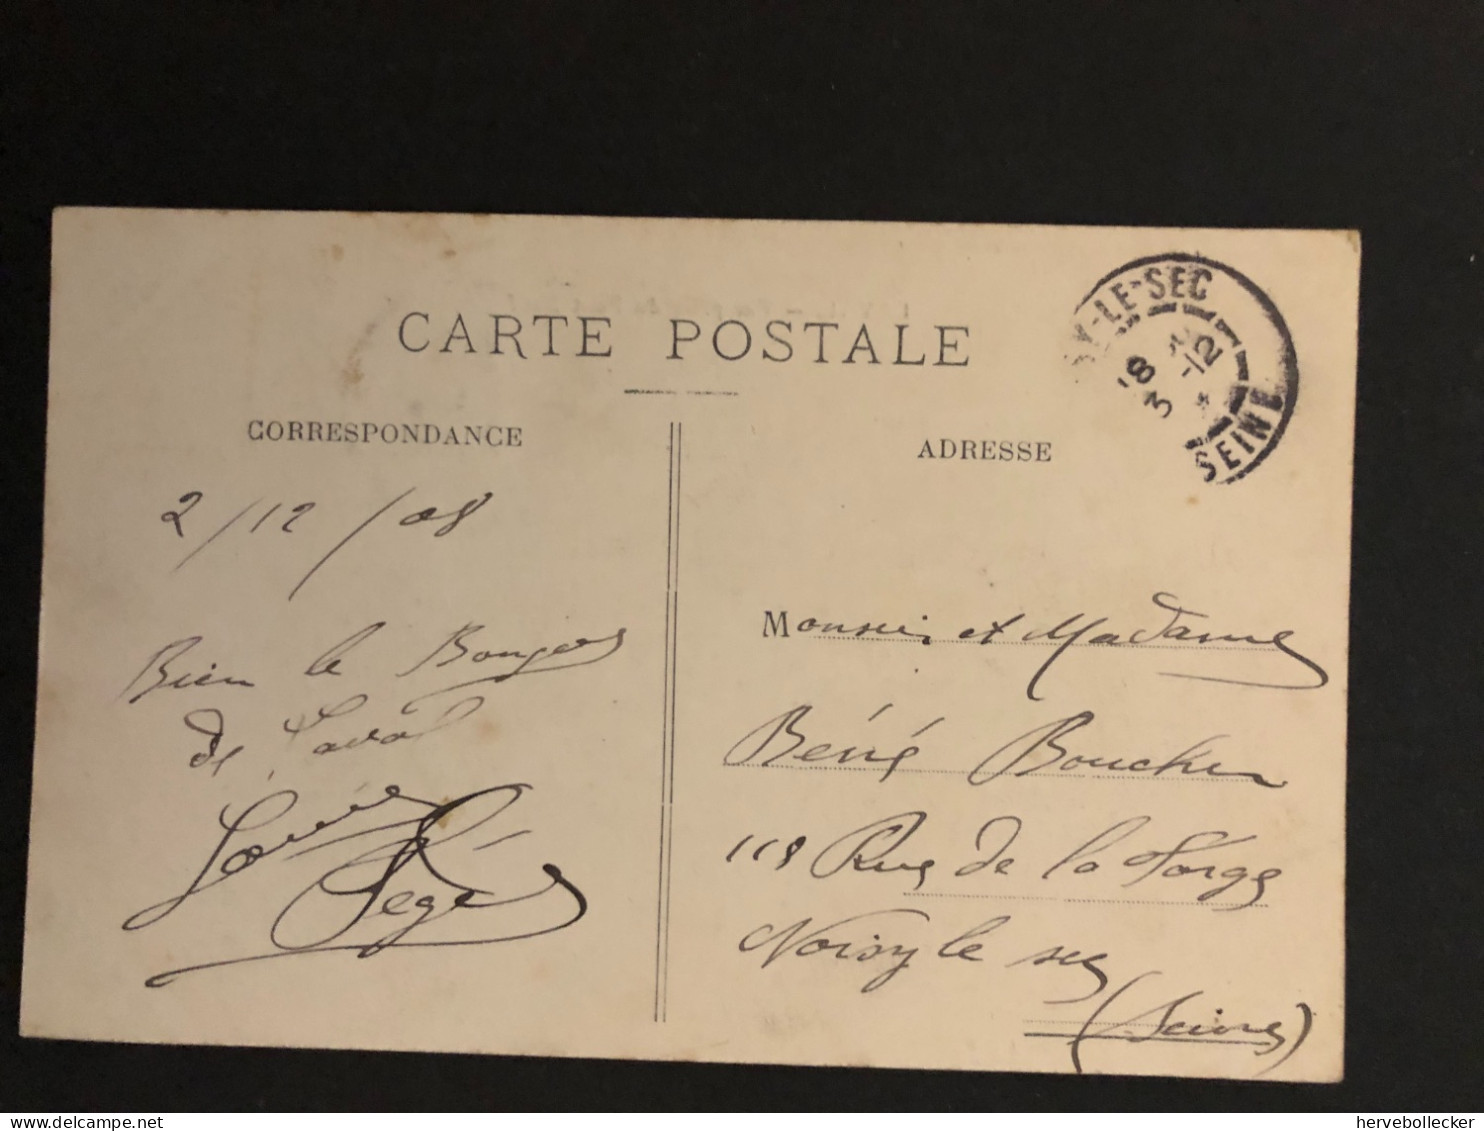 CARTE POSTALE
CORRESPONDANCE
ADRESSE
SY-LE-SEC
18
3 -12
SEINE
2/12/08
Bien le Bonjour
de Laval
Louis
Monsieur et Madame
René Boucher
118 Rue de la Forge
Noisy le sec
(Seine)
hervebollecker